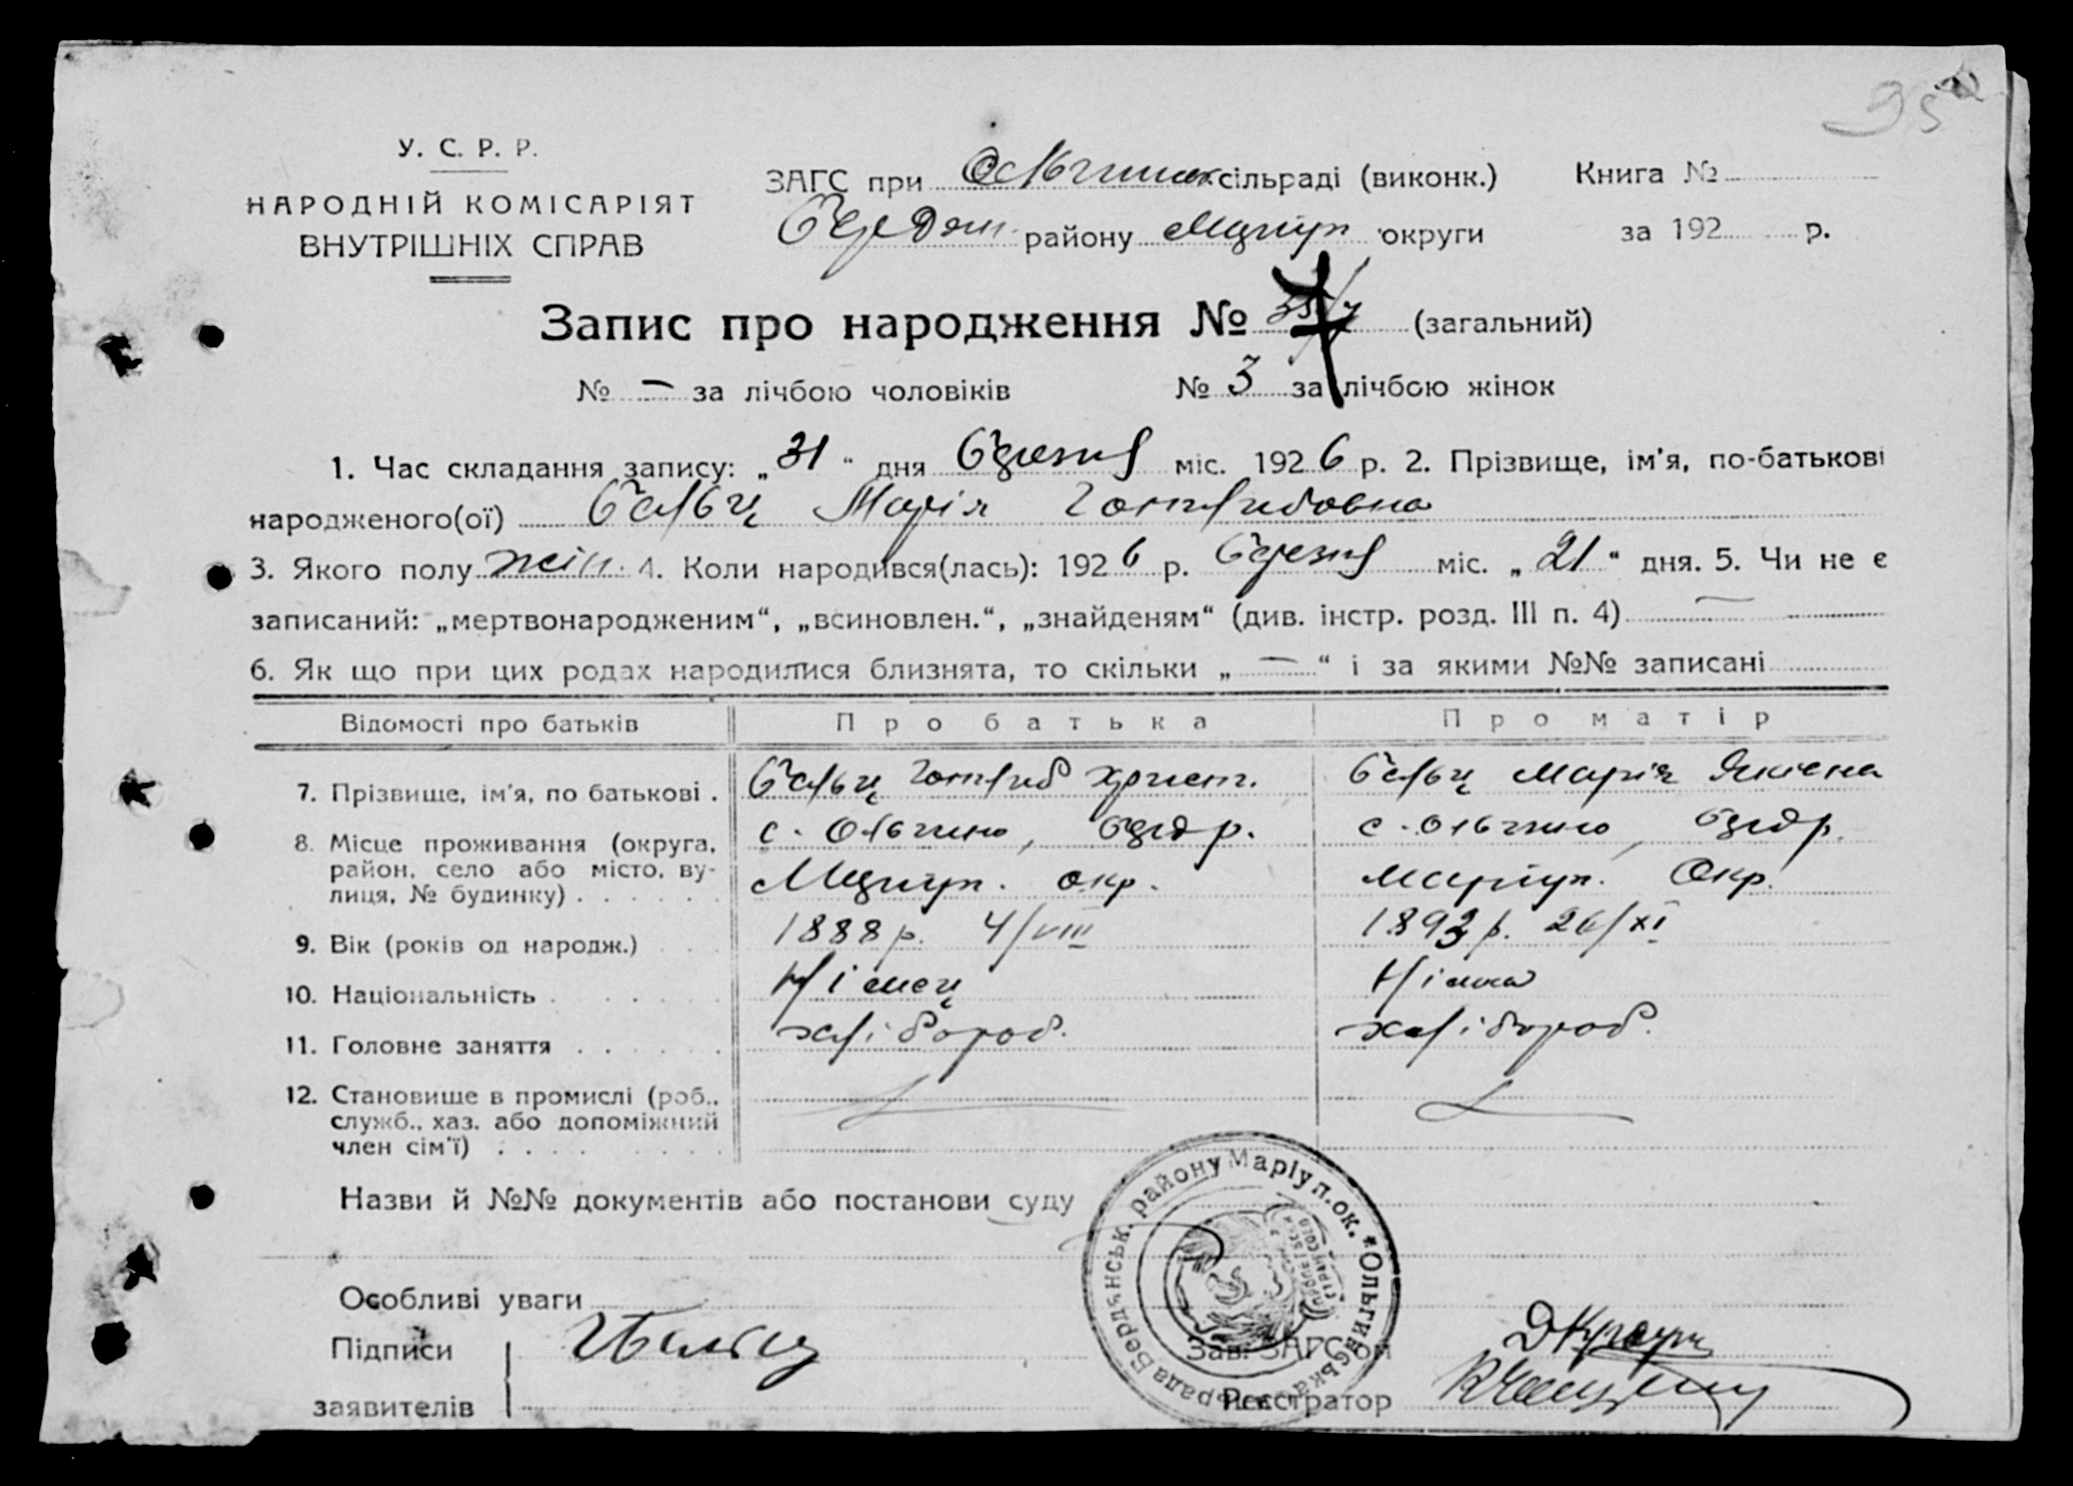 95
У. С. Р. Р.
НАРОДНІЙ КОМІСАРІЯТ
ВНУТРІШНІХ СПРАВ
ЗАГС при Ольгинск. сільраді (виконк.) Книга №
району Маріуп округи за 192 р.
Запис про народження № 7 (загальний)
№ — за лічбою чоловіків № 3 за лічбою жінок
1. Час складання запису: „31“ дня березня міс. 1926 р. 2. Прізвище, ім'я, по-батькові
народженого(ої) Бальц Марія Готлибовна
3. Якого полу жін. 4. Коли народився(лась): 1926 р. березня міс. „21“ дня. 5. Чи не є
записаний: „мертвонародженим“, „всиновлен.“, „знайденям“ (див. інстр. розд. III п. 4) —
6. Як що при цих родах народилися близнята, то скільки „—“ і за якими №№ записані
Відомості про батьків Про батька Про матір
7. Прізвище, ім'я, по батькові . Бальц Готлиб Христ. Бальц Марія
8. Місце проживання (округа, район, село або місто, вулиця, № будинку) с. Ольгино, р. с. Ольгино, р.
Маріуп. окр. Маріуп. Окр.
9. Вік (років од народж.) 1888 р. 4/VIII 1893 р. 26/XI
10. Національність Німец Німка
11. Головне заняття хлібороб. хлібороб.
12. Становище в промислі (роб.,
служб., хаз. або допоміжний
член сім'ї)
Назви й №№ документів або постанови суду
Особливі уваги
Підписи
заявителів
Зав. ЗАГС'ом
Реєстратор
Бердянськ. району Маріуп. ок. * Ольгинська сільрада